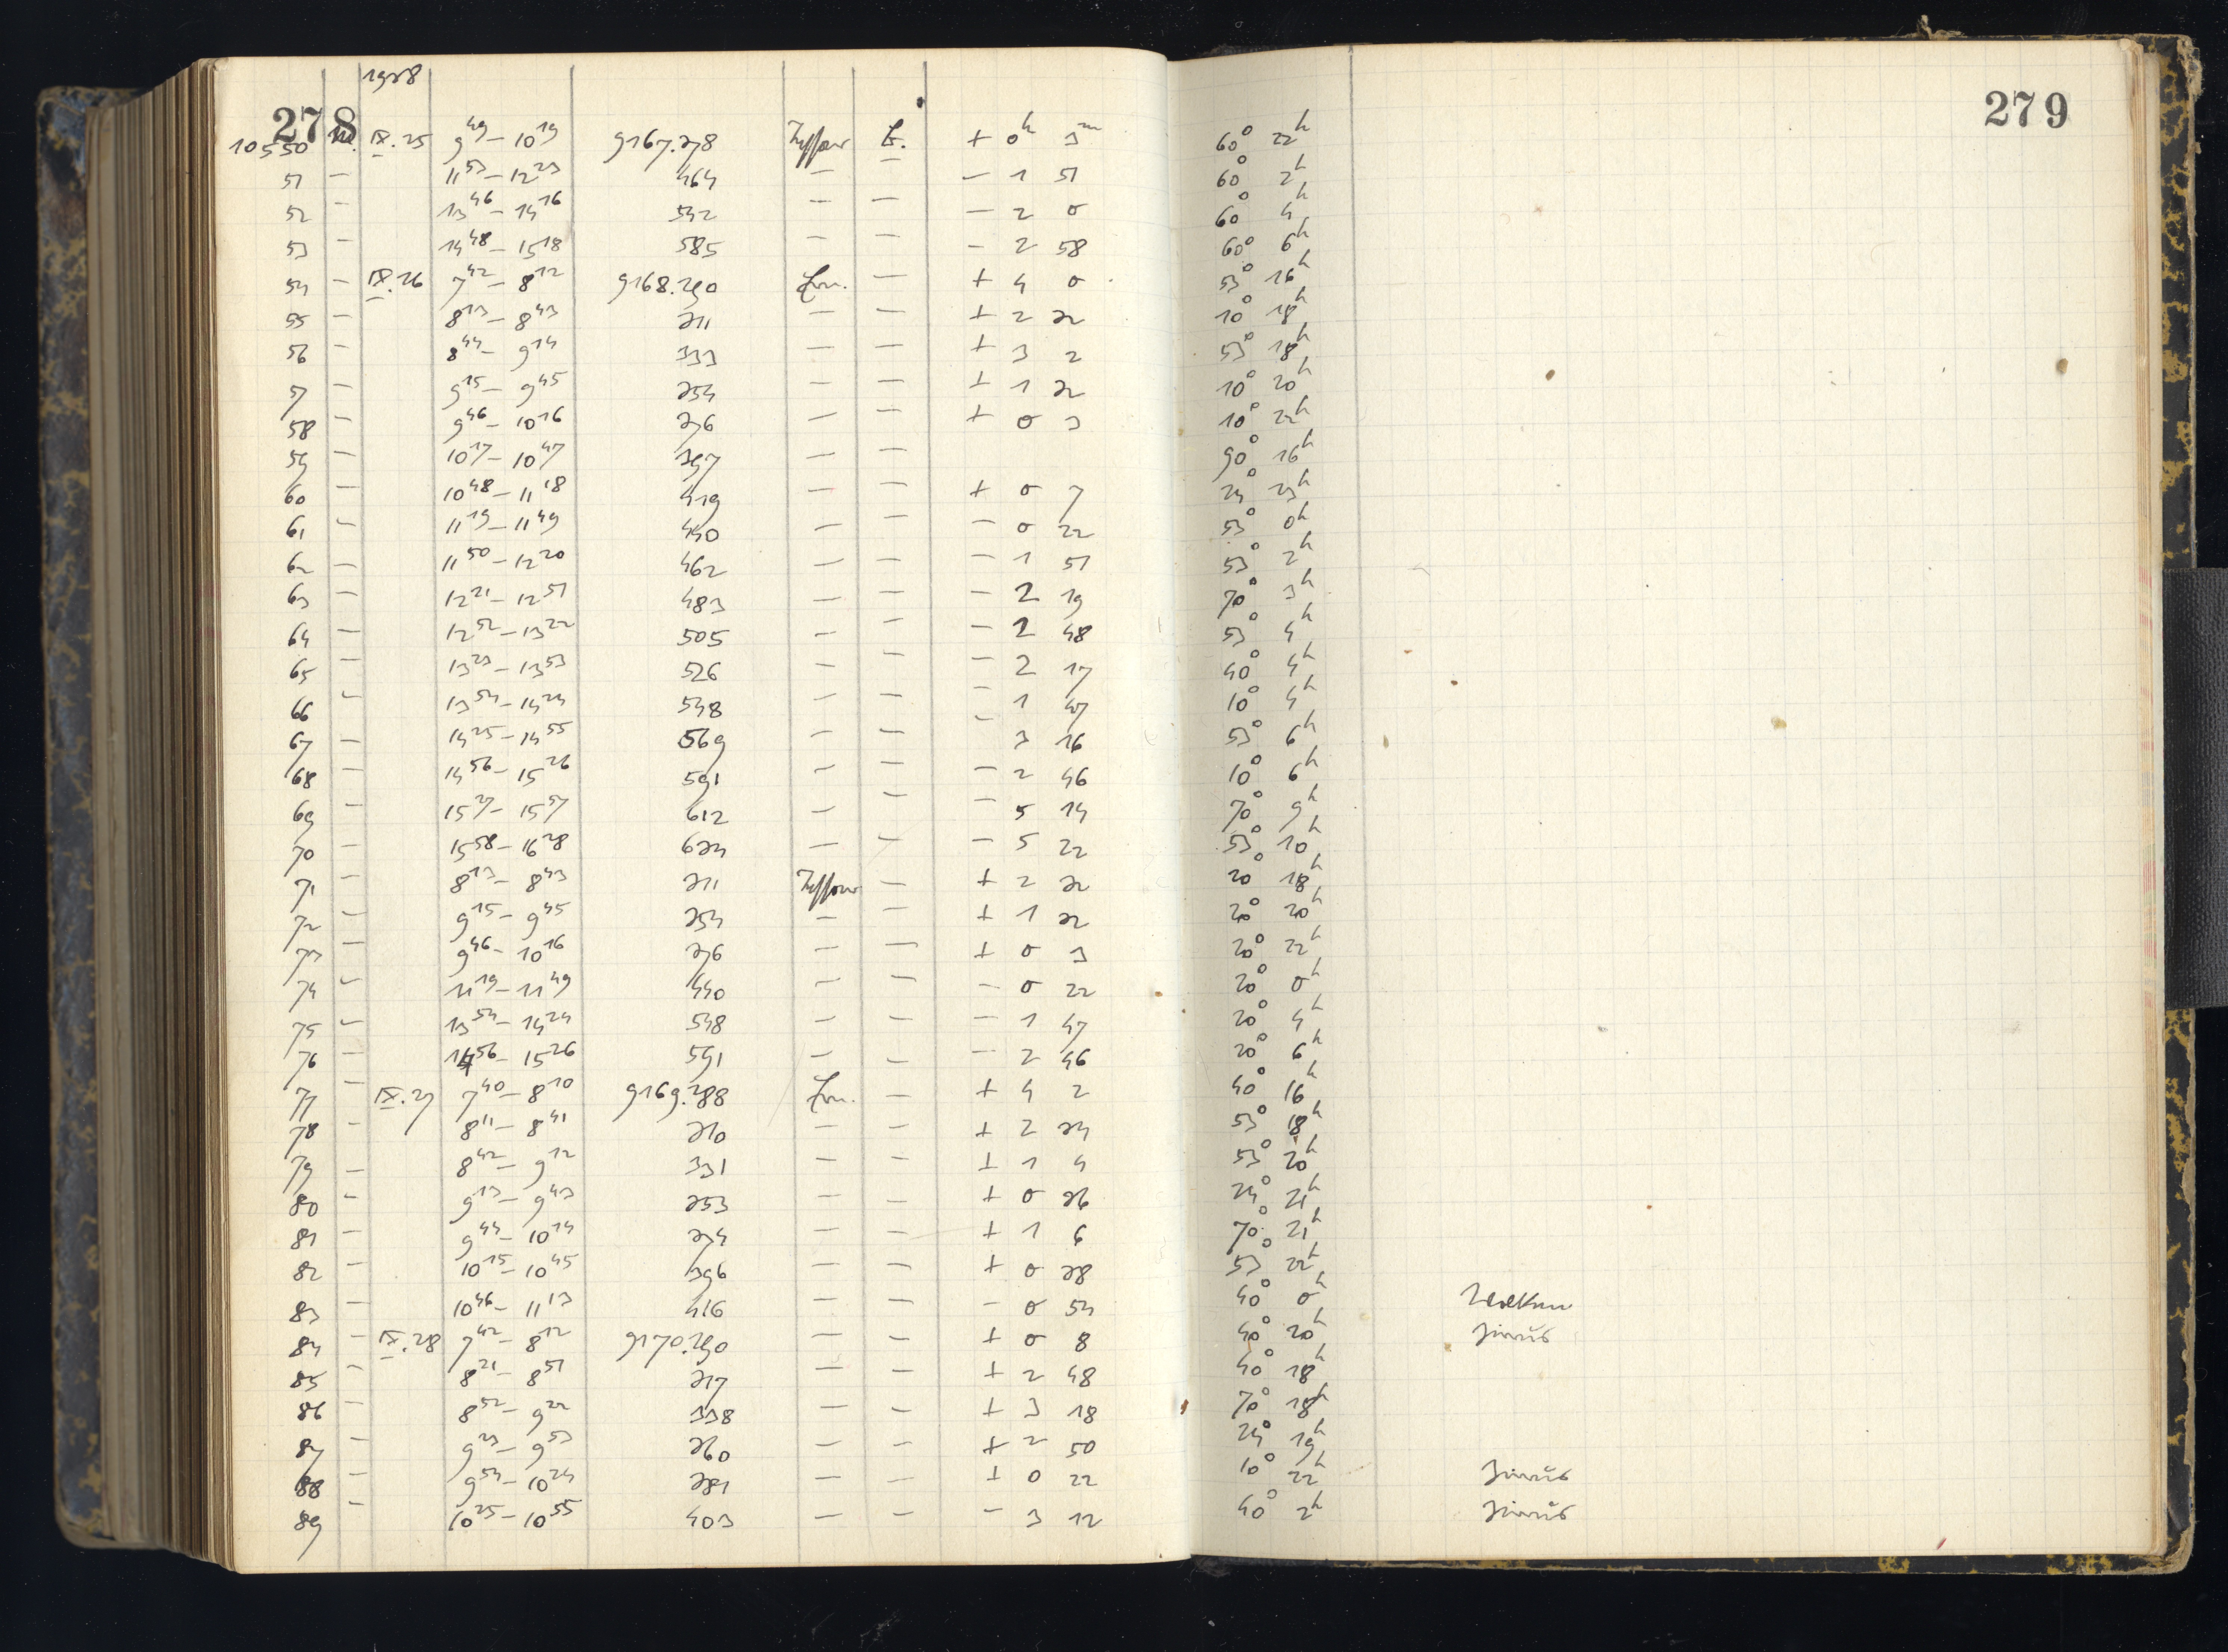 278
279
1928
10550 IX.25 9⁴⁹ – 10¹⁹ 9167.378 Tessar + 0ʰ 3ᵐ 60° 22ʰ
51 – 11⁵³ – 12²³ 464 – – – 1 51 60° 2ʰ
52 – 13⁴⁶ – 14¹⁶ 542 – – – 2 0 60° 4ʰ
53 – 14⁴⁸ – 15¹⁸ 585 – – – 2 58 60° 6ʰ
54 – IX.26 7⁴² – 8¹² 9168.290 Ern. – + 4 0 53° 16ʰ
55 – 8¹³ – 8⁴³ 311 – – + 2 32 10° 18ʰ
56 – 8⁴⁴ – 9¹⁴ 333 – – + 3 2 53° 18ʰ
57 – 9¹⁵ – 9⁴⁵ 354 – – + 1 32 10° 20ʰ
58 – 9⁴⁶ – 10¹⁶ 376 – – + 0 3 10° 22ʰ
59 – 10¹⁷ – 10⁴⁷ 397 – – 90° 16ʰ
60 – 10⁴⁸ – 11¹⁸ 419 – – + 0 7 24° 23ʰ
61 – 11¹⁹ – 11⁴⁹ 440 – – – 0 22 53° 0ʰ
62 – 11⁵⁰ – 12²⁰ 462 – – – 1 51 53° 2ʰ
63 – 12²¹ – 12⁵¹ 483 – – – 2 19 70° 3ʰ
64 – 12⁵² – 13²² 505 – – – 2 48 53° 4ʰ
65 – 13²³ – 13⁵³ 526 – – – 2 17 40° 4ʰ
66 – 13⁵⁴ – 14²⁴ 548 – – – 1 47 10° 4ʰ
67 – 14²⁵ – 14⁵⁵ 569 – – – 3 16 53° 6ʰ
68 – 14⁵⁶ – 15²⁶ 591 – – – 2 46 10° 6ʰ
69 – 15²⁷ – 15⁵⁷ 612 – – – 5 14 70° 9ʰ
70 – 15⁵⁸ – 16²⁸ 634 – – – 5 22 53° 10ʰ
71 – 8¹³ – 8⁴³ 311 Tessar – + 2 32 20° 18ʰ
72 – 9¹⁵ – 9⁴⁵ 354 – – + 1 32 20° 20ʰ
73 – 9⁴⁶ – 10¹⁶ 376 – – + 0 3 20° 22ʰ
74 – 11¹⁹ – 11⁴⁹ 440 – – – 0 22 20° 0ʰ
75 – 13⁵⁴ – 14²⁴ 548 – – – 1 47 20° 4ʰ
76 – 14⁵⁶ – 15²⁶ 591 – – – 2 46 20° 6ʰ
77 – IX.27 7⁴⁰ – 8¹⁰ 9169.288 Ern. – + 4 2 40° 16ʰ
78 – 8¹¹ – 8⁴¹ 310 – – + 2 34 53° 18ʰ
79 – 8⁴² – 9¹² 331 – – + 1 4 53° 20ʰ
80 – 9¹³ – 9⁴³ 353 – – + 0 36 24° 21ʰ
81 – 9⁴⁴ – 10¹⁴ 374 – – + 1 6 70° 21ʰ
82 – 10¹⁵ – 10⁴⁵ 396 – – + 0 38 53° 22ʰ
83 – 10⁴⁶ – 11¹³ 416 – – – 0 54 40° 0ʰ Wolken
84 – IX.28 7⁴² – 8¹² 9170.290 – – + 0 8 40° 20ʰ Zirrus
85 – 8²¹ – 8⁵¹ 317 – – + 2 48 40° 18ʰ
86 – 8⁵² – 9²² 338 – – + 3 18 70° 18ʰ
87 – 9²³ – 9⁵³ 360 – – + 2 50 24° 19ʰ
88 – 9⁵⁴ – 10²⁴ 381 – – + 0 22 10° 22ʰ Zirrus
89 – 10²⁵ – 10⁵⁵ 403 – – – 3 12 40° 2ʰ Zirrus